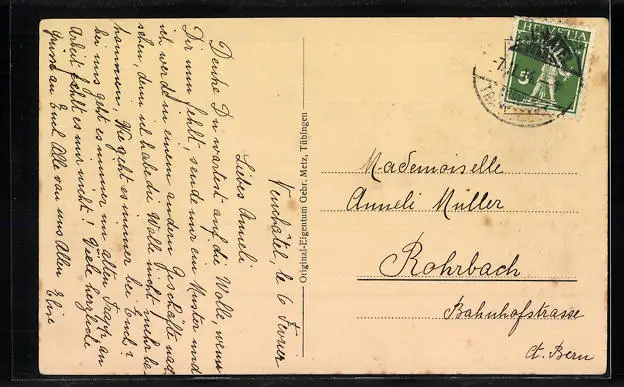 Neuchâtel, le 6 Février
Liebes Anneli
Denke Du wartest auf die Wolle, wenn
Dir nun fehlt, sende mir ein Muster und
ich werde in einem andern Geschäfte nach
sehen, denn ich habe die Wolle nicht mehr be
kommen. Wie geht es immer bei Euch?
bei uns geht es immer im alten Trapp, an
Arbeit fehlt es mir nicht! Viele herzliche
Grüsse an Euch Alle von uns Allen Elise
Original-Eigentum Gebr. Metz, Tübingen
HELVETIA
5
Mademoiselle
Anneli Müller
Rohrbach
Bahnhofstrasse
Kt. Bern